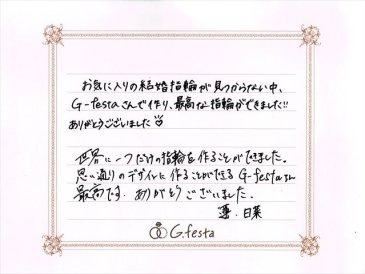 お気に入りの結婚指輪が見つからない中、
G-festaさんで作り、最高な指輪ができました!!
ありがとうございました♡
世界に一つだけの指輪を作ることができました。
思い通りのデザインに作ることができるG-festaさん
最高です。ありがとうございました。
蓮・日菜
G.festa